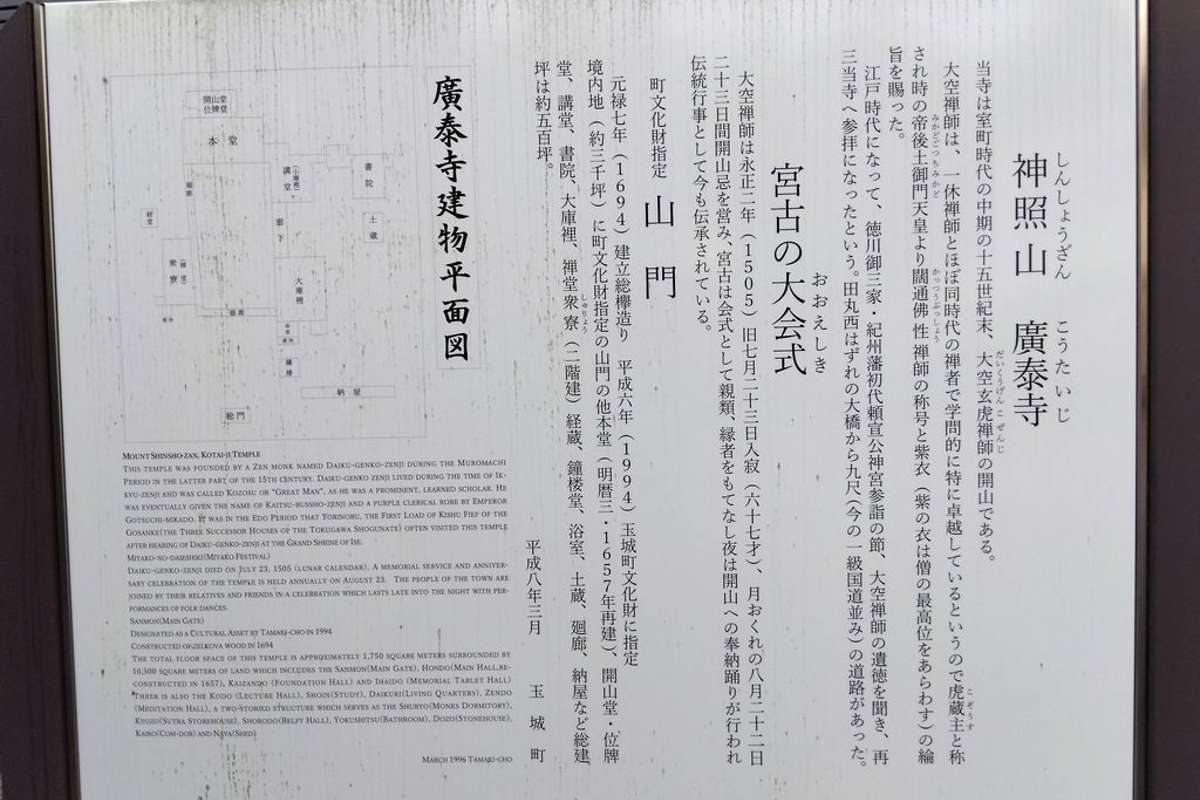 しんしょうざん こうたいじ
神照山 廣泰寺
当寺は室町時代の中期の十五世紀末、大空玄虎禅師の開山である。
だいくうげんこぜんじ
大空禅師は、一休禅師とほぼ同時代の禅者で学問的に特に卓越しているというので虎蔵主と称
こぞうす
され時の帝後土御門天皇より闊通佛性禅師の称号と紫衣（紫の衣は僧の最高位をあらわす）の綸
みかどごつちみかど かっつうぶっしょう
旨を賜った。
江戸時代になって、徳川御三家・紀州藩初代頼宣公神宮参詣の節、大空禅師の遺徳を聞き、再
三当寺へ参拝になったという。田丸西はずれの大橋から九尺（今の一級国道並み）の道路があった。
おおえしき
宮古の大会式
大空禅師は永正二年（1505）旧七月二十三日入寂（六十七才）、月おくれの八月二十二日
二十三日間開山忌を営み、宮古は会式として親類、縁者をもてなし夜は開山への奉納踊りが行われ
伝統行事として今も伝承されている。
町文化財指定 山門
元禄七年（1694）建立総欅造り 平成六年（1994）玉城町文化財に指定
境内地（約三千坪）に町文化財指定の山門の他本堂（明暦三・1657年再建）、開山堂・位牌
堂、講堂、書院、大庫裡、禅堂衆寮（二階建）経蔵、鐘楼堂、浴室、土蔵、廻廊、納屋など総建
しゅりょう
坪は約五百坪。
平成八年三月 玉城町
廣泰寺建物平面図
開山堂
位牌堂
本堂
書院
講堂
土蔵
廊下
大庫裡
衆寮
納屋
総門
MOUNT SHINSHO-ZAN, KOTAI-JI TEMPLE
THIS TEMPLE WAS FOUNDED BY A ZEN MONK NAMED DAIKU-GENKO-ZENJI DURING THE MUROMACHI
PERIOD IN THE LATTER PART OF THE 15TH CENTURY. DAIKU-GENKO ZENJI LIVED DURING THE TIME OF IK-
KYU-ZENJI AND WAS CALLED KOZOSU OR "GREAT MAN", AS HE WAS A PROMINENT, LEARNED SCHOLAR. HE
WAS EVENTUALLY GIVEN THE NAME OF KAITSU-BUSSHO-ZENJI AND A PURPLE CLERICAL ROBE BY EMPEROR
GOTSUCHI-MIKADO. IT WAS IN THE EDO PERIOD THAT YORINOBU, THE FIRST LOAD OF KISHU FIEF OF THE
GOSANKE(THE THREE SUCCESSOR HOUSES OF THE TOKUGAWA SHOGUNATE) OFTEN VISITED THIS TEMPLE
AFTER HEARING OF DAIKU-GENKO-ZENJI AT THE GRAND SHRINE OF ISE.
MIYAKO-NO-DAIESHIKI(MIYAKO FESTIVAL)
DAIKU-GENKO-ZENJI DIED ON JULY 23, 1505 (LUNAR CALENDAR). A MEMORIAL SERVICE AND ANNIVER-
SARY CELEBRATION OF THE TEMPLE IS HELD ANNUALLY ON AUGUST 23. THE PEOPLE OF THE TOWN ARE
JOINED BY THEIR RELATIVES AND FRIENDS IN A CELEBRATION WHICH LASTS LATE INTO THE NIGHT WITH PER-
FORMANCES OF FOLK DANCES.
SANMON(MAIN GATE)
DESIGNATED AS A CULTURAL ASSET BY TAMAKI-CHO IN 1994
CONSTRUCTED OFZELKOVA WOOD IN 1694
THE TOTAL FLOOR SPACE OF THIS TEMPLE IS APPROXIMATELY 1,750 SQUARE METERS SURROUNDED BY
10,500 SQUARE METERS OF LAND WHICH INCLUDES THE SANMON(MAIN GATE), HONDO(MAIN HALL,RE-
CONSTRUCTED IN 1657), KAIZANDO (FOUNDATION HALL) AND IHAIDO (MEMORIAL TABLET HALL)
THRER IS ALSO THE KODO (LECTURE HALL), SHOIN(STUDY), DAIKURI(LIVING QUARTERS), ZENDO
(MEDITATION HALL), A TWO-STORIED STRUCTURE WHICH SERVES AS THE SHURYO(MONKS DORMITORY),
KYOZO(SUTRA STOREHOUSE), SHORODO(BELFY HALL), YOKUSHITSU(BATHROOM), DOZO(STONEHOUSE),
KAIRO(COM-DOR) AND NAYA(SHED)
MARCH 1996 TAMAKI-CHO